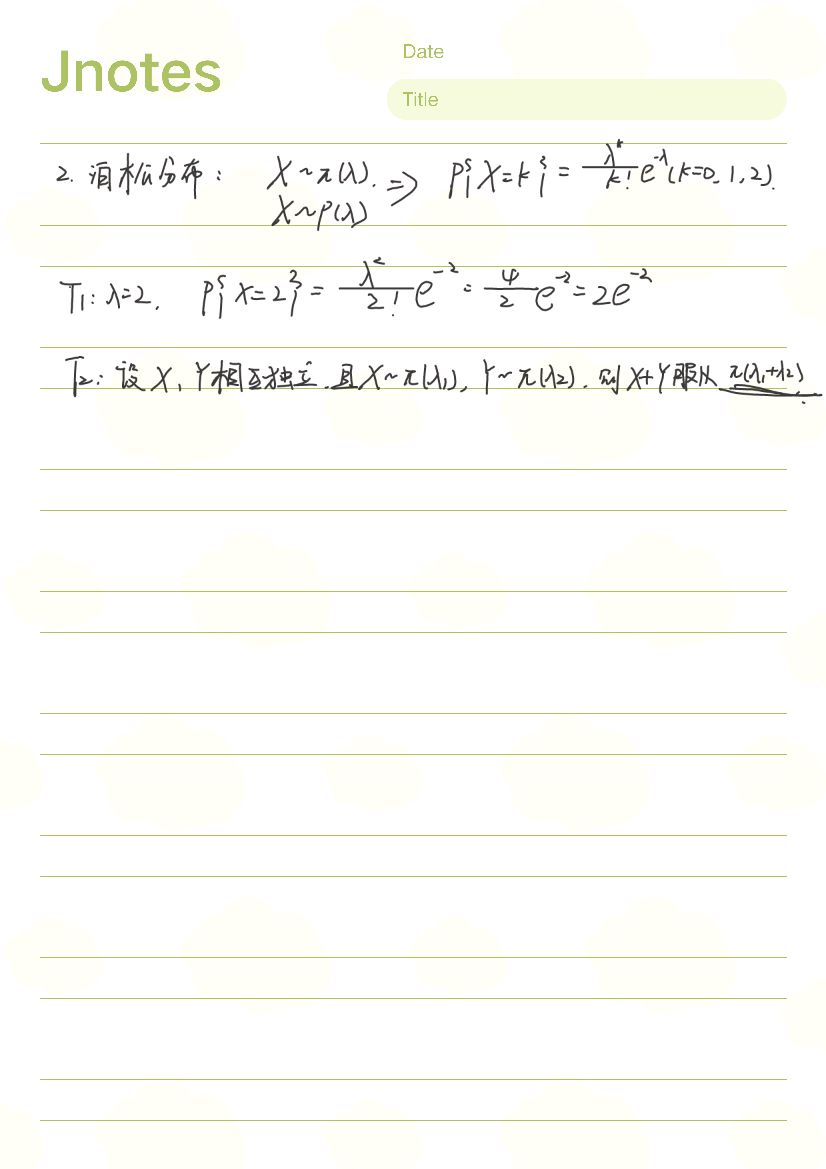 Jnotes
Date
Title
2. 泊松分布: X~π(λ). X~P(λ) => P{X=k} = λ^k/k! e^-λ (k=0,1,2).
T1: λ=2. P{X=2} = λ^2/2! e^-2 = 4/2 e^-2 = 2e^-2
T2: 设X、Y相互独立.且X~π(λ1), Y~π(λ2). 则X+Y服从 π(λ1+λ2).